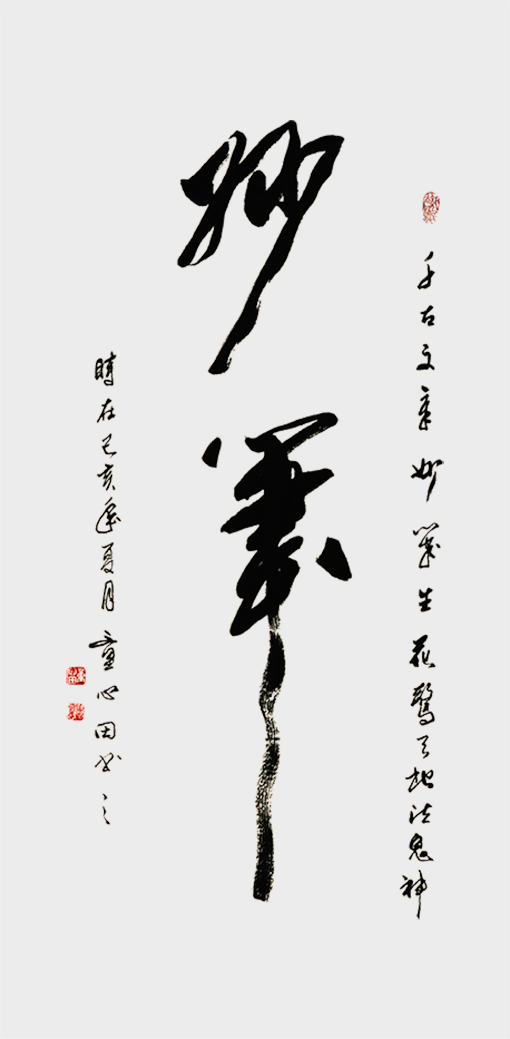 千古文章妙笔生花驚天地泣鬼神
妙筆
時在己亥年夏月童心田书之